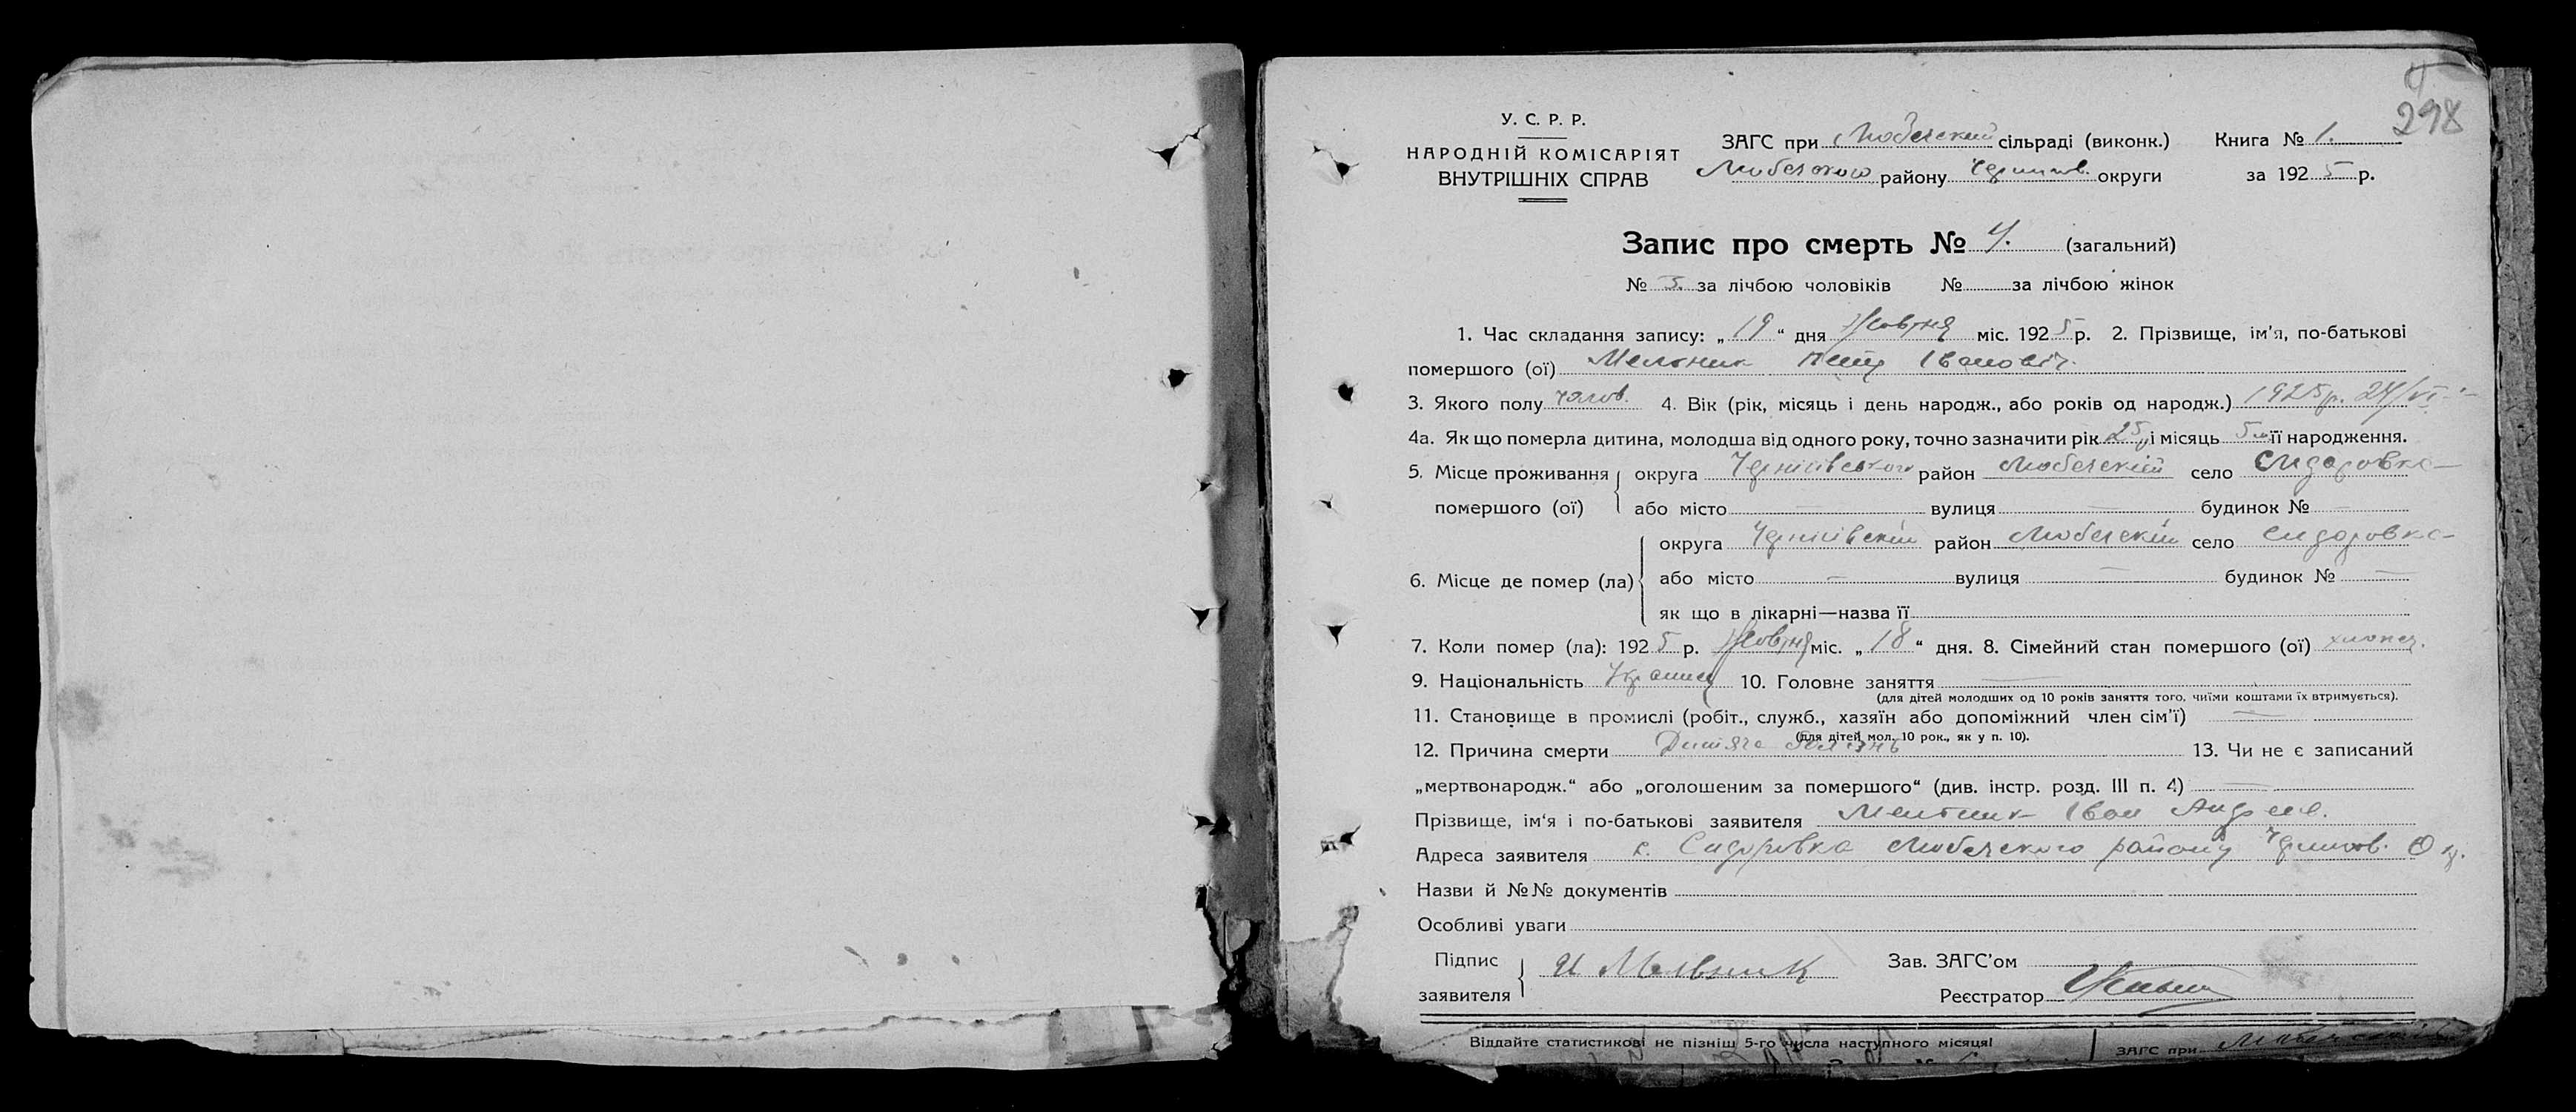 298
У. С. Р. Р.
НАРОДНІЙ КОМІСАРІЯТ
ВНУТРІШНІХ СПРАВ
ЗАГС при Любечский сільраді (виконк.) Книга № 1.
Любечского району Чернигов. округи за 1925 р.
Запис про смерть № 4. (загальний)
№ 3. за лічбою чоловіків № за лічбою жінок
1. Час складання запису: „ 19 “ дня Жовтня міс. 1925 р. 2. Прізвище, ім'я, по-батькові
помершого (ої) Мельник Петр Іванович.
3. Якого полу чолов. 4. Вік (рік, місяць і день народж., або років од народж.) 1925 р. 24/VI
4а. Як що померла дитина, молодша від одного року, точно зазначити рік 25 і місяць 5 її народження.
5. Місце проживання округа Чернігівського район Любечскій село Сидоровка
помершого (ої) або місто — вулиця — будинок № —
округа Чернігівскій район Любечскій село Сидоровка
6. Місце де помер (ла) або місто — вулиця — будинок № —
як що в лікарні—назва її
7. Коли помер (ла): 1925 р. Жовтня міс. „ 18 “ дня. 8. Сімейний стан помершого (ої)
9. Національність Украинец 10. Головне заняття —
(для дітей молодших од 10 років заняття того, чиїми коштами їх втримується).
11. Становище в промислі (робіт., служб., хазяїн або допоміжний член сім'ї) —
(для дітей мол. 10 рок., як у п. 10).
12. Причина смерти Дитяча болізнь 13. Чи не є записаний
„мертвонародж.“ або „оголошеним за помершого“ (див. інстр. розд. III п. 4) —
Прізвище, ім'я і по-батькові заявителя Мельник Іван Андреев.
Адреса заявителя с. Сидоровка Любечского району Чернигов. Окр.
Назви й №№ документів
Особливі уваги
Підпис И Мельник Зав. ЗАГС'ом
заявителя Реєстратор
Віддайте статистикові не пізніш 5-го числа наступного місяця!
ЗАГС при